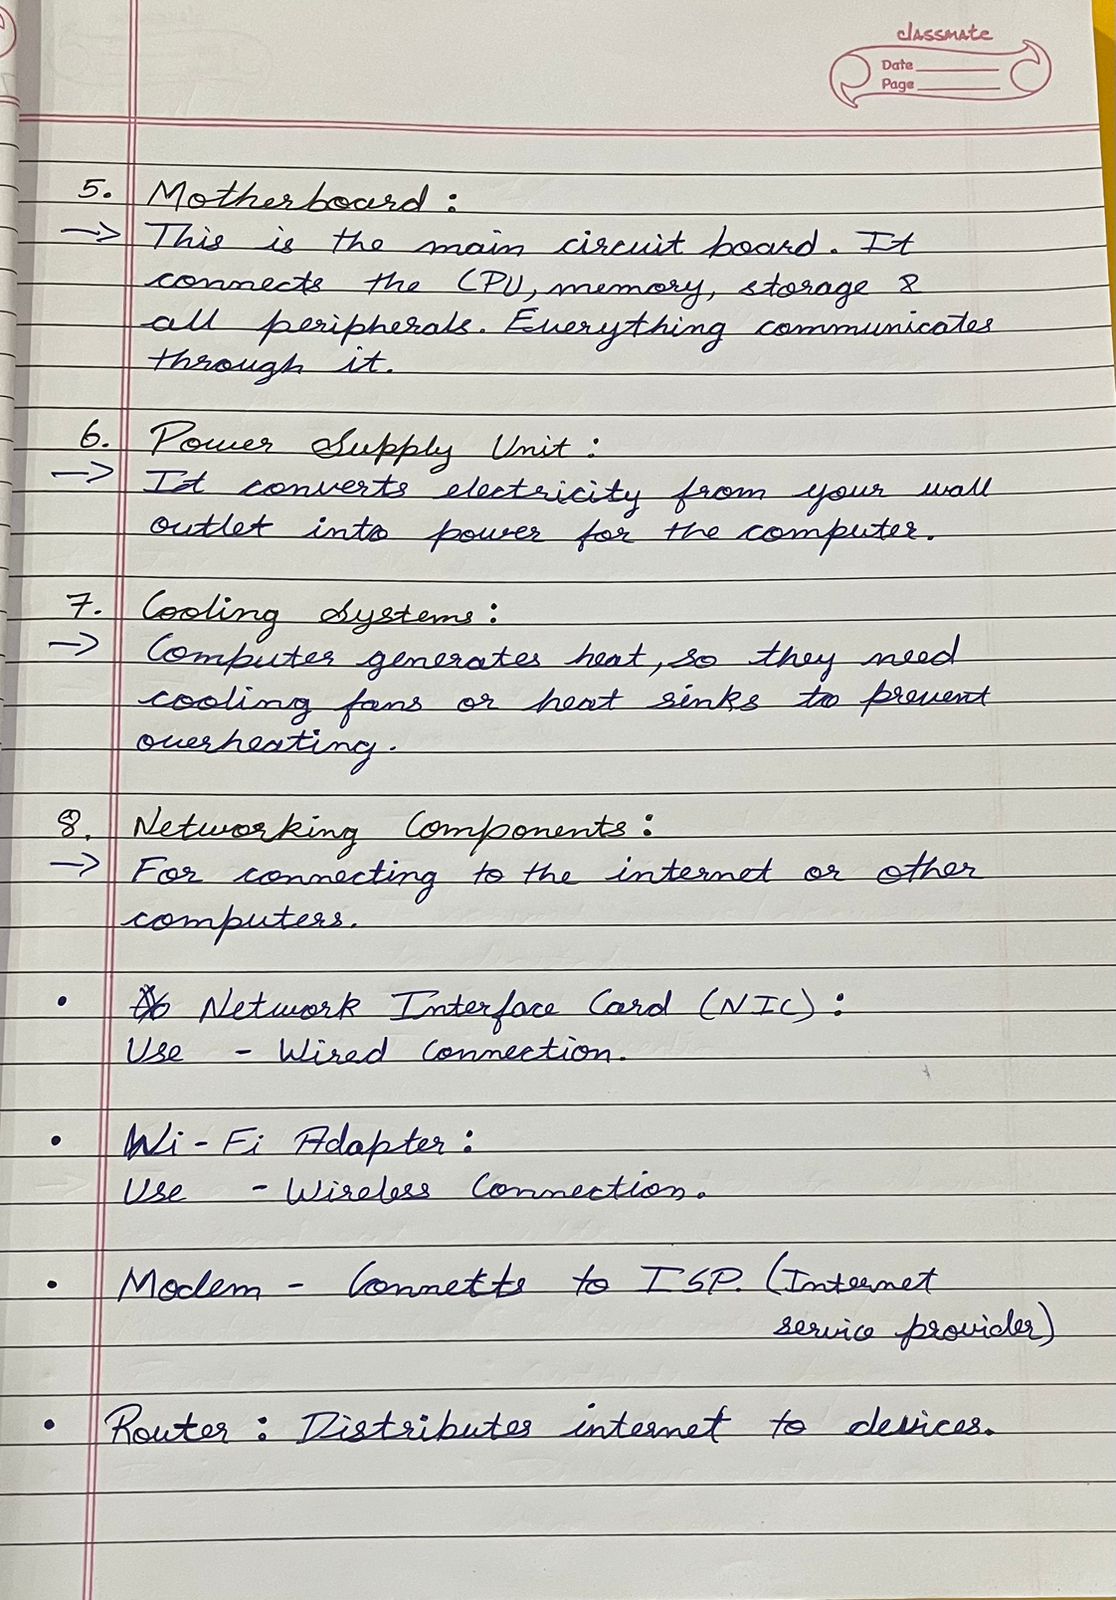 classmate
Date
Page
5. Motherboard :
→ This is the main circuit board. It
connects the CPU, memory, storage &
all peripherals. Everything communicates
through it.
6. Power Supply Unit :
→ It converts electricity from your wall
outlet into power for the computer.
7. Cooling Systems :
→ Computer generates heat, so they need
cooling fans or heat sinks to prevent
overheating.
8. Networking Components :
→ For connecting to the internet or other
computers.
• Network Interface Card (NIC) :
Use - Wired Connection.
• Wi-Fi Adapter :
Use - Wireless Connection.
• Modem - Connects to ISP. (Internet
service provider)
• Router : Distributes internet to devices.